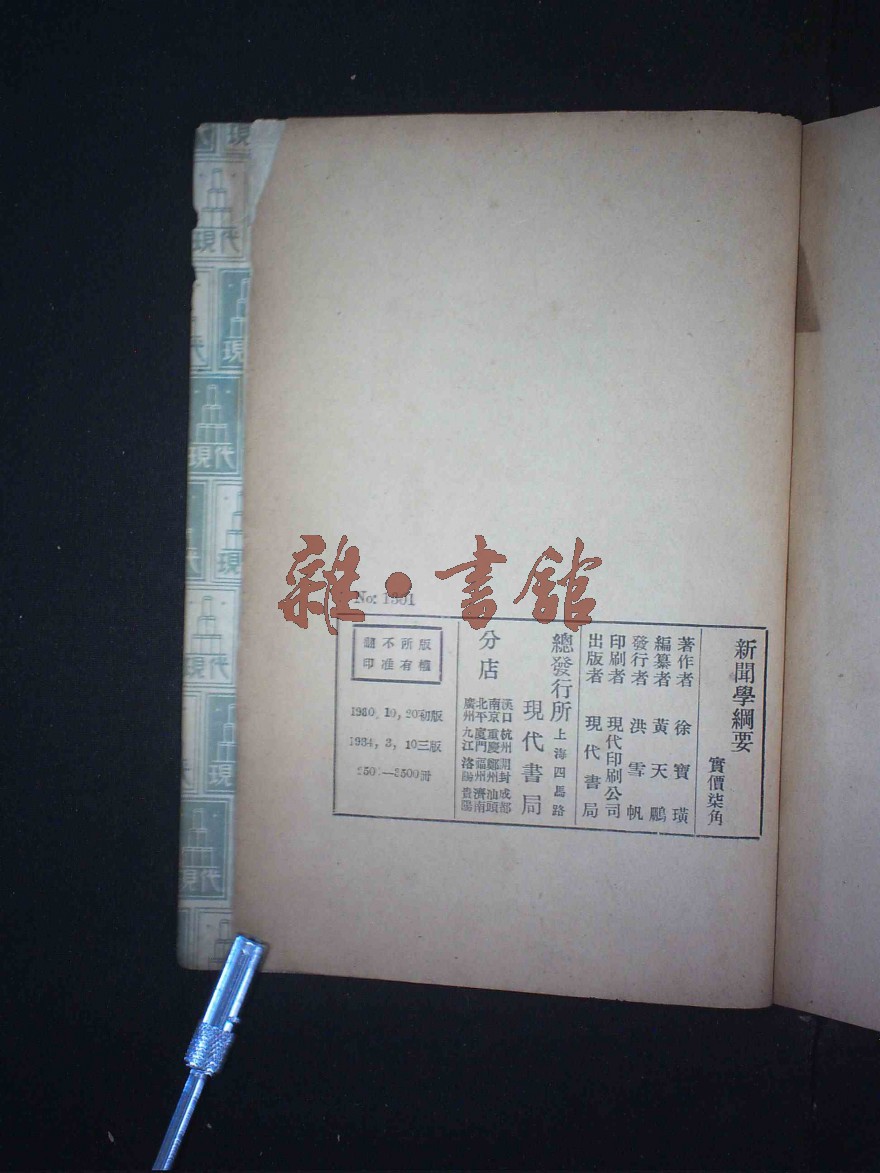 雜·書館
新聞學綱要
實價柒角
著作者 徐寶璜
編纂者 黃天鵬
發行者 洪雪帆
印刷者 現代印刷公司
出版者 現代書局
總發行所 上海四馬路
現代書局
分店
漢口 杭州 開封 成都
南京 重慶 鄭州 汕頭
北平 廈門 福州 濟南
廣州 九江 洛陽 貴陽
版權所有
不准翻印
1930, 10, 20初版
1934, 3, 10三版
—3500冊
現代
現代
現代
現代